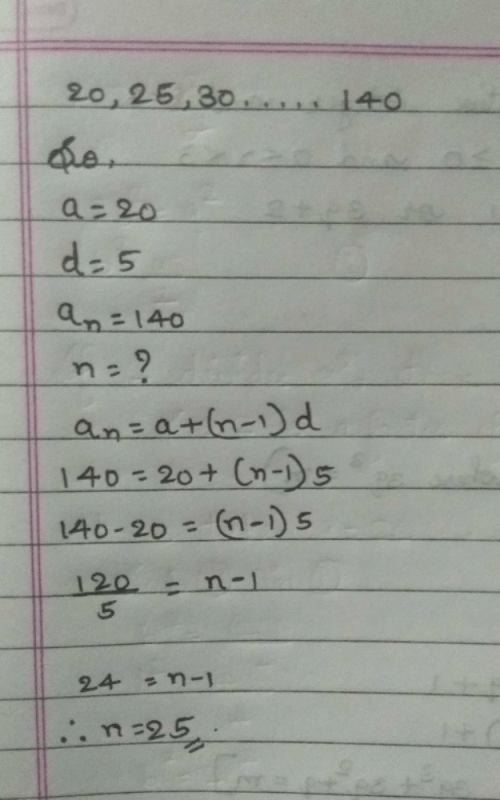 20, 25, 30 ..... 140
a = 20
d = 5
aₙ = 140
n = ?
aₙ = a + (n-1) d
140 = 20 + (n-1) 5
140 - 20 = (n-1) 5
120/5 = n-1
24 = n-1
∴ n = 25